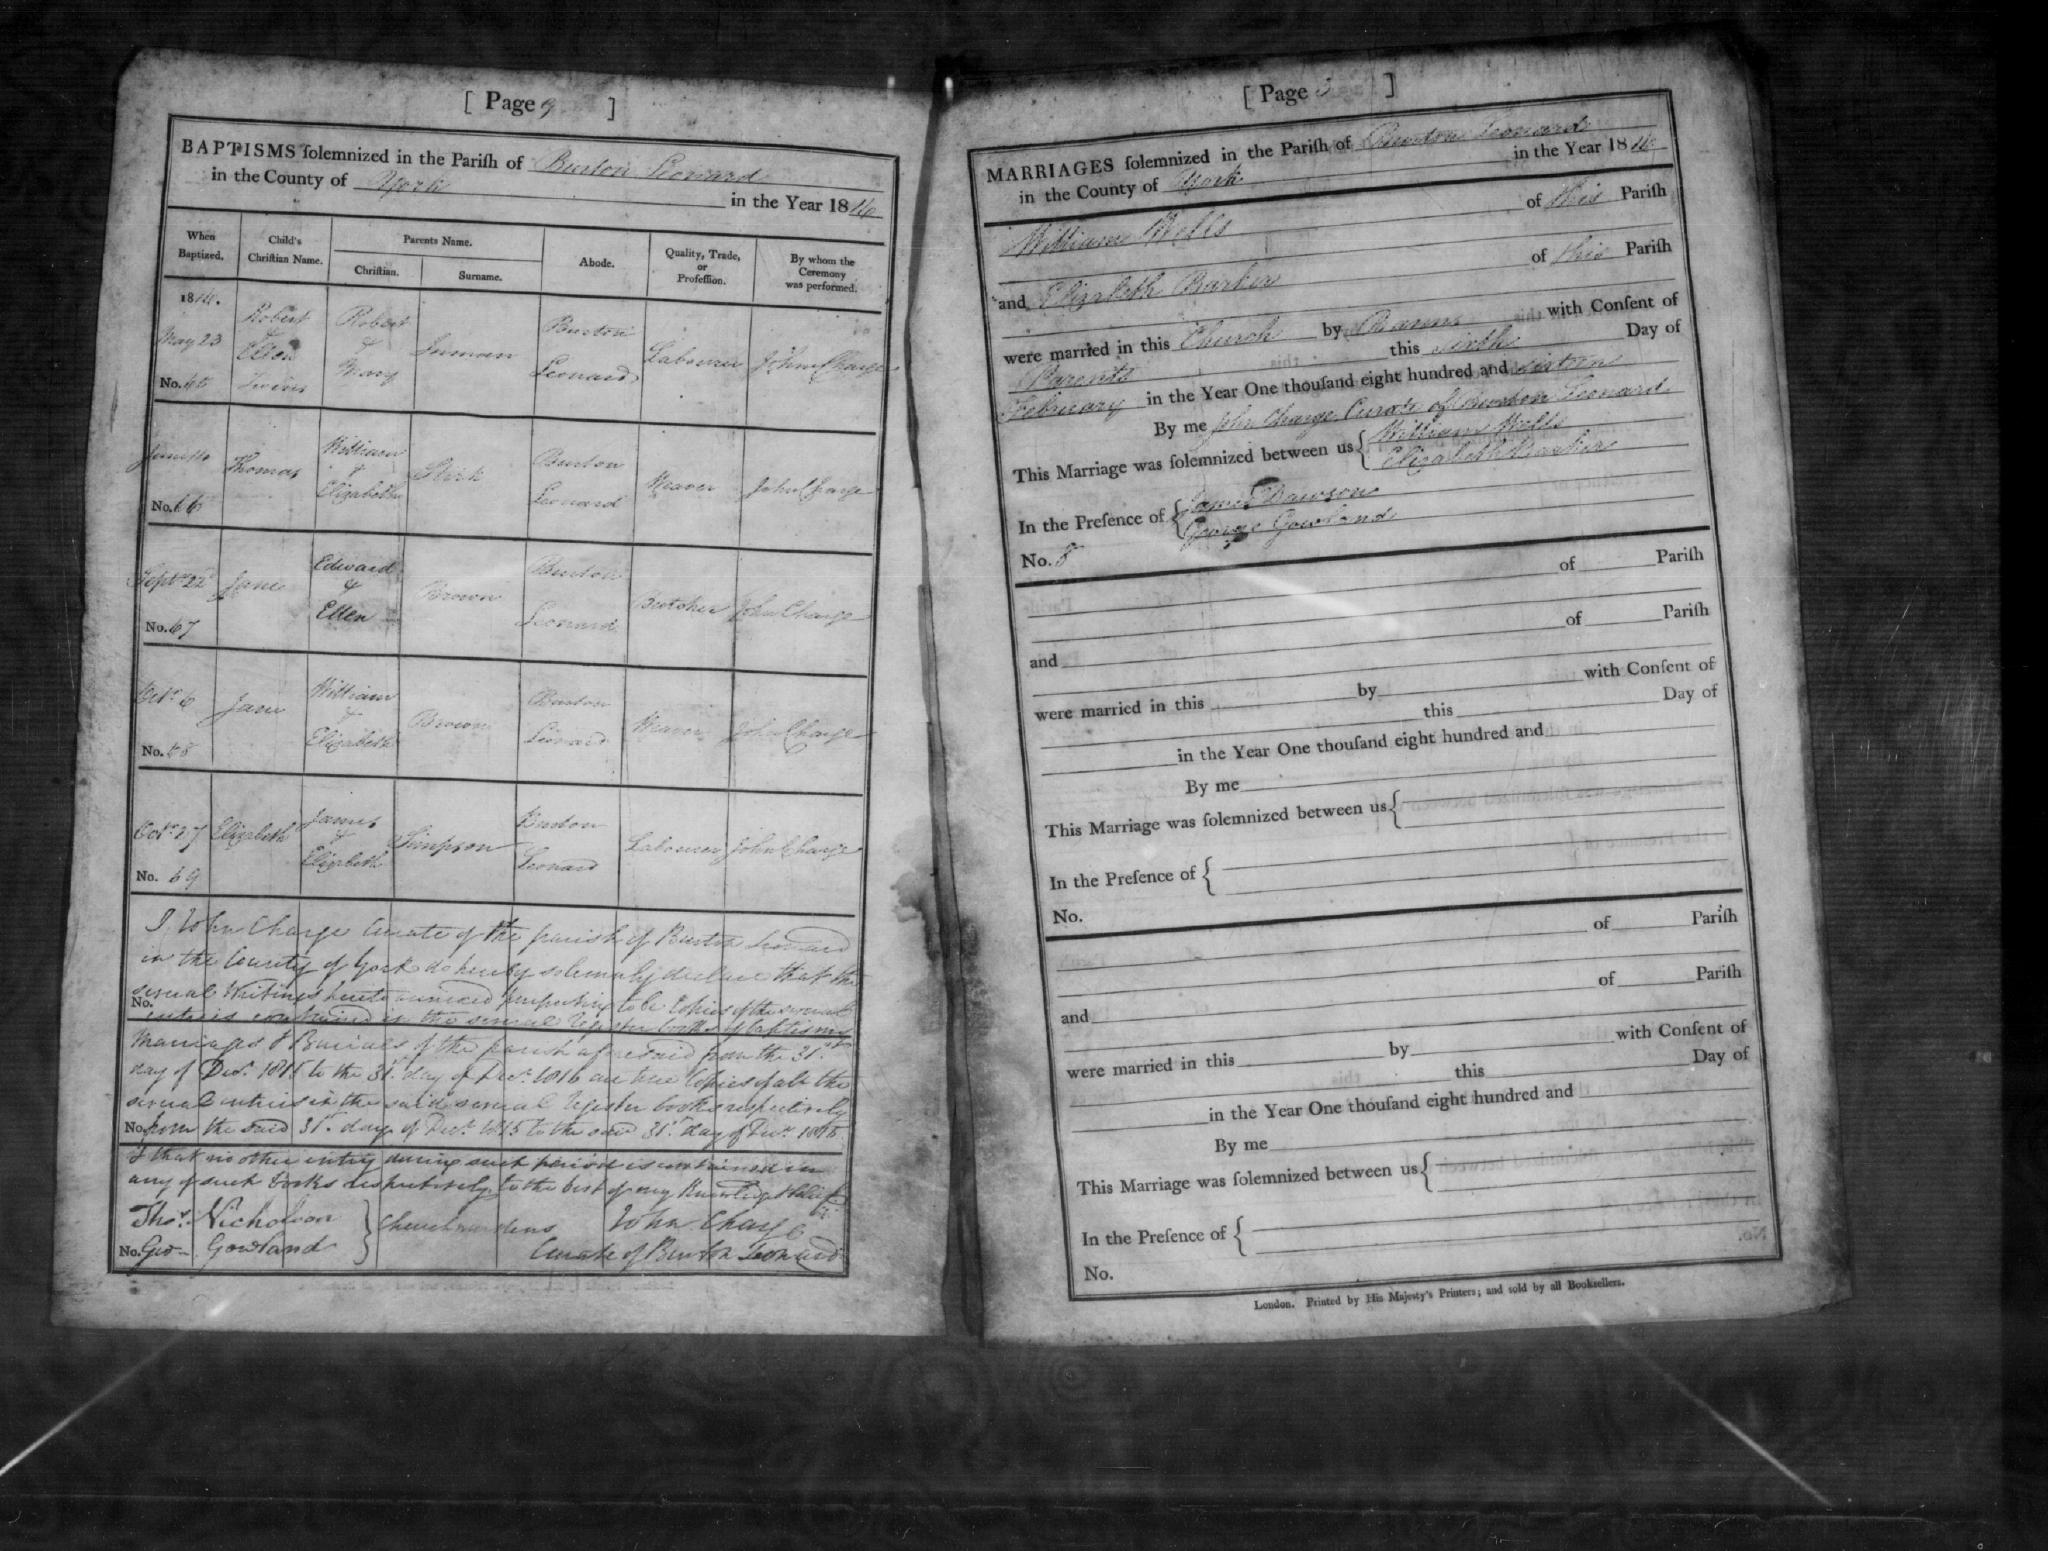 [ Page 9 ]
BAPTISMS ſolemnized in the Pariſh of Burton Leonard
in the County of York in the Year 1816
When Baptized.
Child's Chriſtian Name.
Parents Name.
Chriſtian.
Surname.
Abode.
Quality, Trade, or Profeſſion.
By whom the Ceremony was performed.
1816.
May 23
No. 65
Robert & Ellen Twins
Robert & Mary
Inman
Burton Leonard
Labourer
John Charge
No. 66
Thomas
William & Elizabeth
Stirk
Burton Leonard
Weaver
John Charge
Septr 22d
No. 67
Jane
Edward & Ellen
Brown
Burton Leonard
Butcher
John Charge
Octr 6
No. 68
Jane
William & Elizabeth
Brown
Burton Leonard
Weaver
John Charge
Octr 27
No. 69
Elizabeth
James & Elizabeth
Simpson
Burton Leonard
Labourer
John Charge
I John Charge Curate of the parish of Burton Leonard
in the County of York do hereby solemnly declare that the
several Writings hereto annexed purporting to be Copies of the several
No.
entries contained in the several Register books of baptisms
Marriages & Burials of the parish aforesaid from the 31st
day of Decr. 1815 to the 31st. day of Decr. 1816 are true Copies of all the
several entries in the said several Register books respectively
No. from the said 31st. day of Decr. 1815 to the said 31st day of Decr. 1816
& that no other entry during such period is contained in
any of such books respectively to the best of my Knowledge & belief
Thos. Nicholson } Churchwardens John Charge
No. Geo- Gowland Curate of Burton Leonard
[ Page 3 ]
MARRIAGES ſolemnized in the Pariſh of Burton Leonard
in the County of York in the Year 1816
William Wells of this Pariſh
and Elizabeth Barker of this Pariſh
were married in this Church by Banns with Conſent of
Parents this sixth Day of
February in the Year One thouſand eight hundred and sixteen
By me John Charge Curate of Burton Leonard
This Marriage was ſolemnized between us { William Wells
Elizabeth Barker
In the Preſence of { James Dawson
George Gowland
No. 8
of Pariſh
and of Pariſh
were married in this by with Conſent of
this Day of
in the Year One thouſand eight hundred and
By me
This Marriage was ſolemnized between us {
In the Preſence of {
No.
of Pariſh
and of Pariſh
were married in this by with Conſent of
this Day of
in the Year One thouſand eight hundred and
By me
This Marriage was ſolemnized between us {
In the Preſence of {
No.
London. Printed by His Majeſty's Printers; and ſold by all Bookſellers.